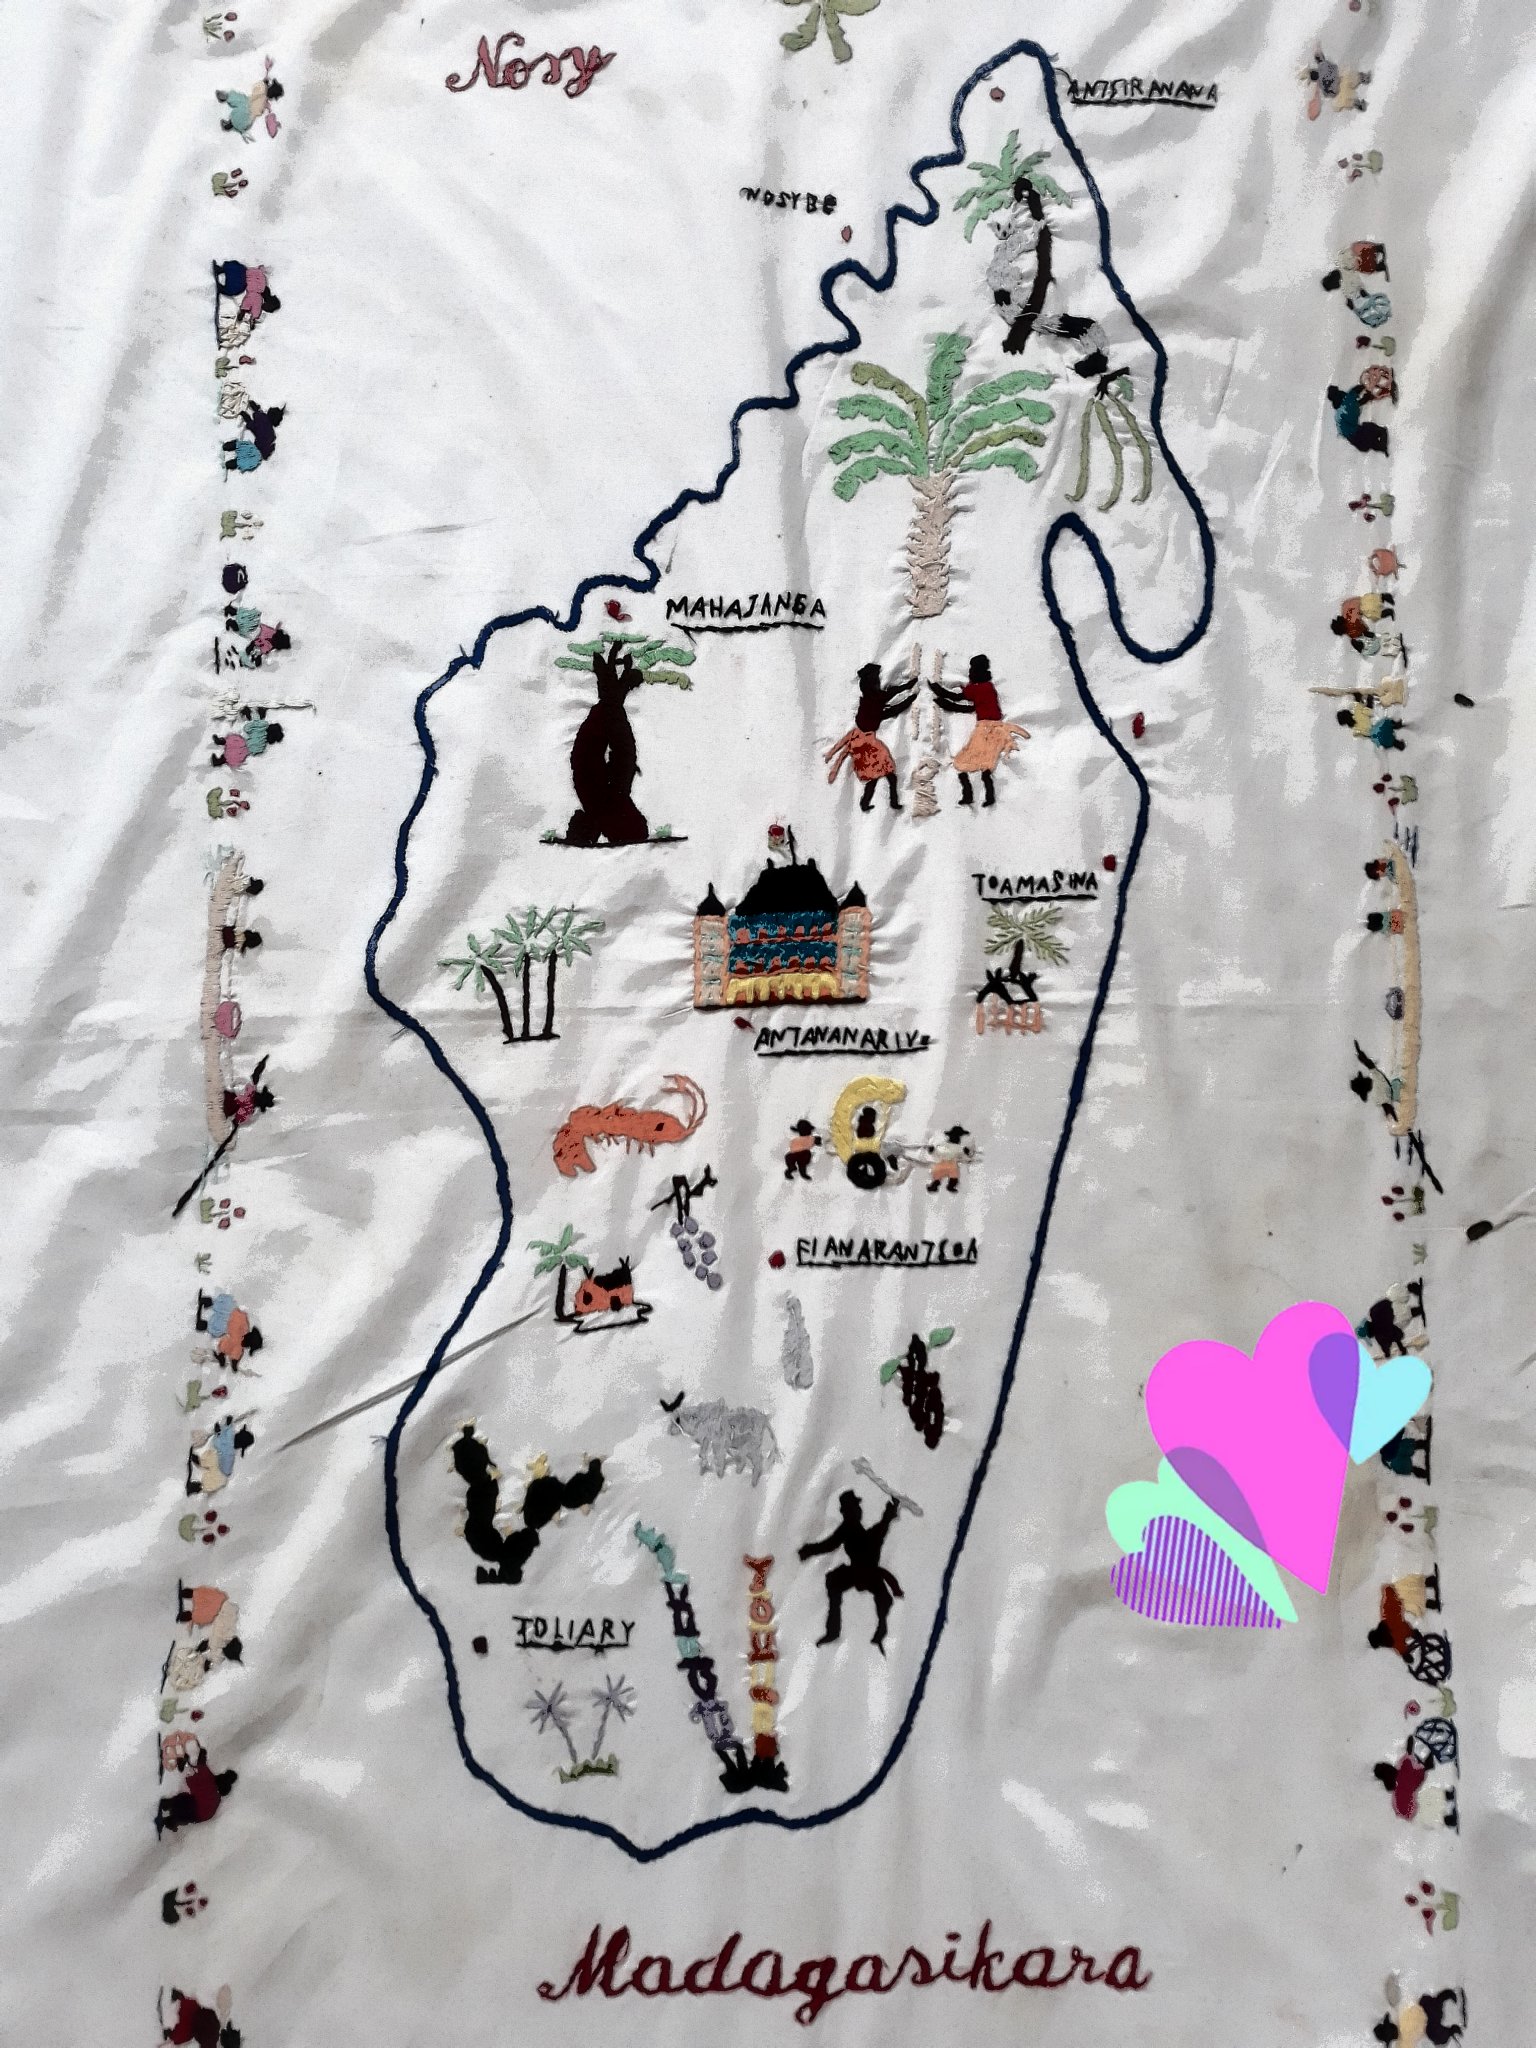 Nosy
ANTSIRANANA
NOSYBE
MAHAJANGA
TOAMASINA
ANTANANARIVO
FIANARANTSOA
TOLIARY
Madagasikara